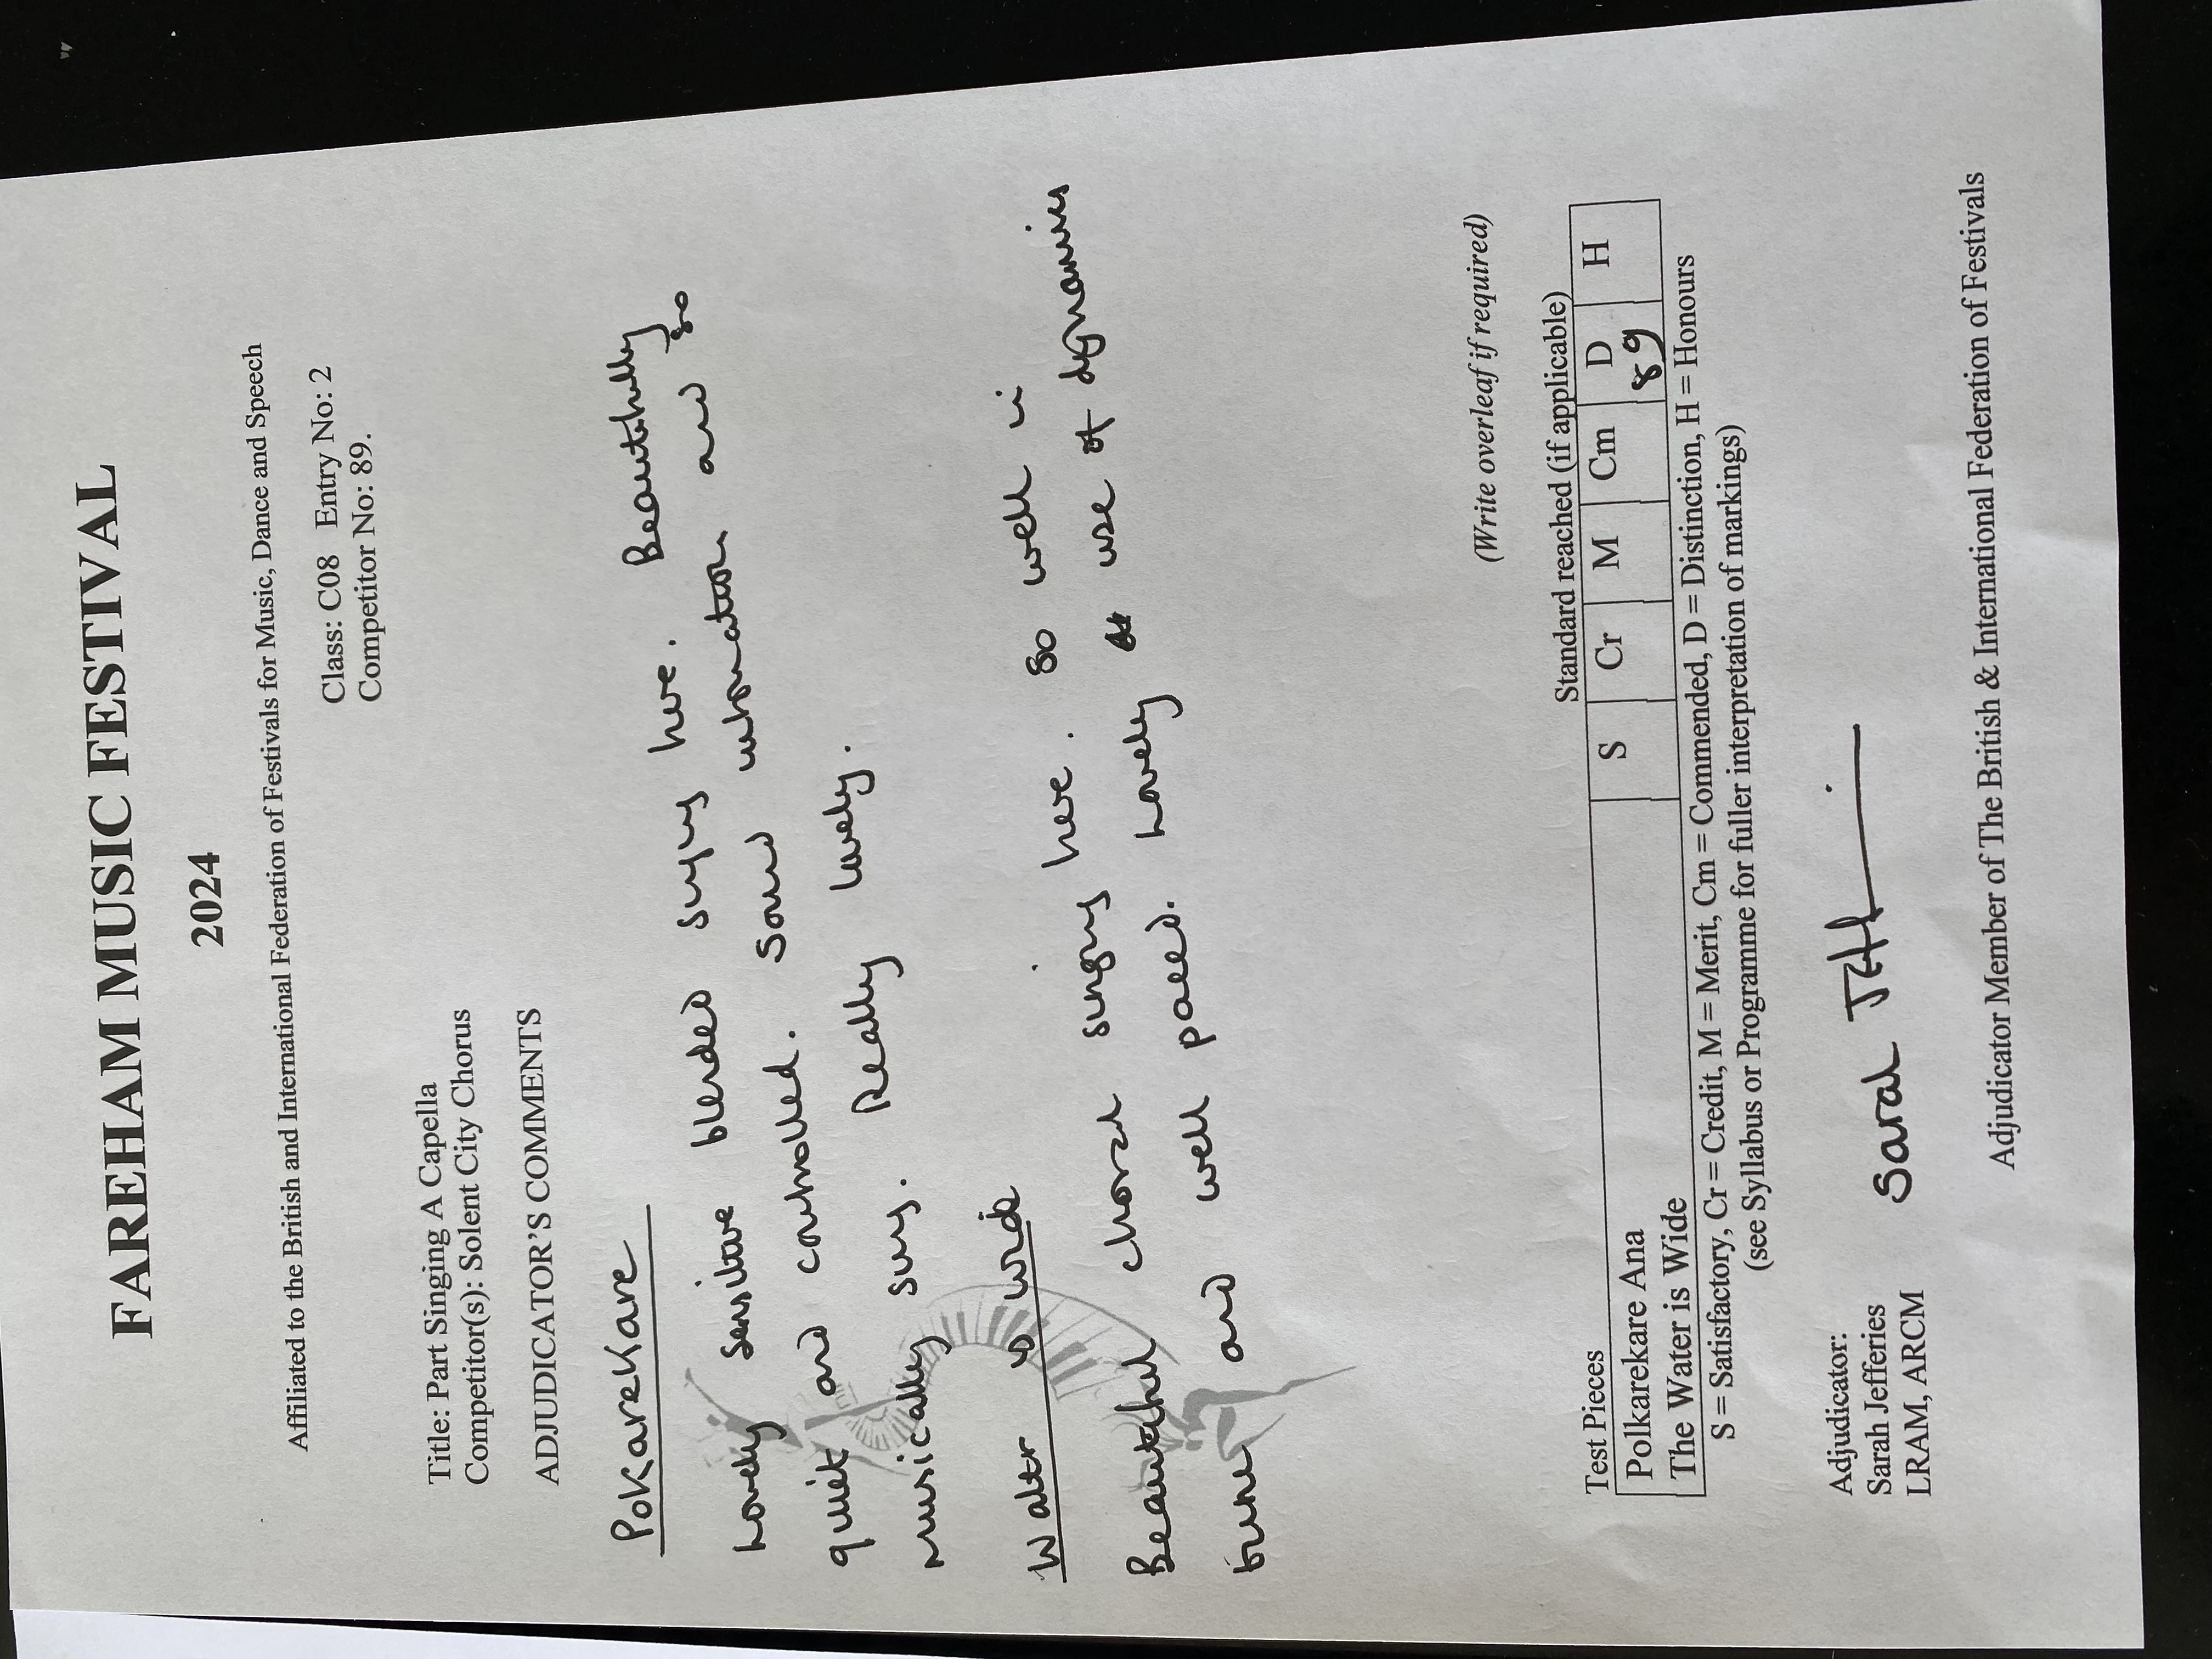 FAREHAM MUSIC FESTIVAL
2024
Affiliated to the British and International Federation of Festivals for Music, Dance and Speech
Class: C08 Entry No: 2
Competitor No: 89.
Title: Part Singing A Capella
Competitor(s): Solent City Chorus
ADJUDICATOR'S COMMENTS
Pokarekare
Lovely sensitive blended singing here. Beautifully
quiet and controlled. Sound intonation and so
musically sung. Really lovely.
Water is wide
Beautiful choral singing here. So well in
tune and well paced. Lovely use of dynamics
(Write overleaf if required)
Test Pieces
Standard reached (if applicable)
Polkarekare Ana
S Cr M Cm D H
The Water is Wide
89
S = Satisfactory, Cr = Credit, M = Merit, Cm = Commended, D = Distinction, H = Honours
(see Syllabus or Programme for fuller interpretation of markings)
Adjudicator:
Sarah Jefferies
LRAM, ARCM
Sarah Jeff
Adjudicator Member of The British & International Federation of Festivals